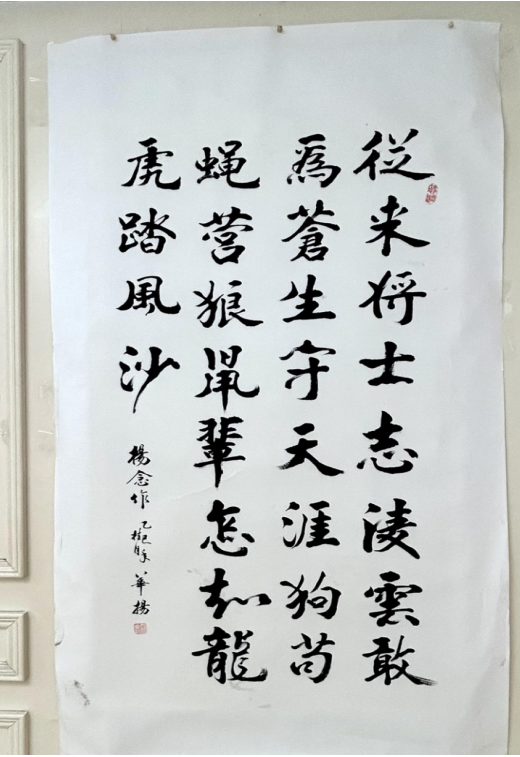 從来将士志凌雲敢
為蒼生守天涯狗苟
蝇营狼鼠輩怎知龍
虎踏風沙
楊念作 乙巳 華揚